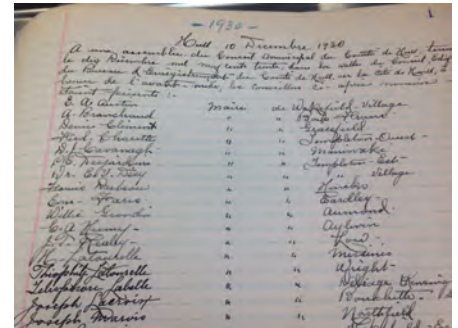 1
- 1930 -
Hull 10 Decembre 1930
A une assemblée du Conseil Municipal du Comté de Hull, tenue
le dix Décembre mil neuf cent trente, dans la salle du Conseil Edifice
du Bureau d'Enregistrement du Comté de Hull, en la Cité de Hull, à
heure de l'avant-midi, les conseillers ci-après
étaient présents :-
E. A. Austin Maire de Wakefield Village
A. Branchaud " "
Denis Clément " " Gracefield
Fred. Charette " " Templeton Ouest -
D. J. Cavanagh " " Maniwaki
" " Templeton - Est -
Dr. " " " Village
" "
Em. " " Eardley
Willie Grondin " " Aumond.
C. A. " " Aylwin
J. Kealey " " Low.
Latourelle " "
Théophile Latourelle " " Wright -
Télésphore Labelle " "
Joseph Lacroix " " Bouchette -
Joseph Marois " " Northfield